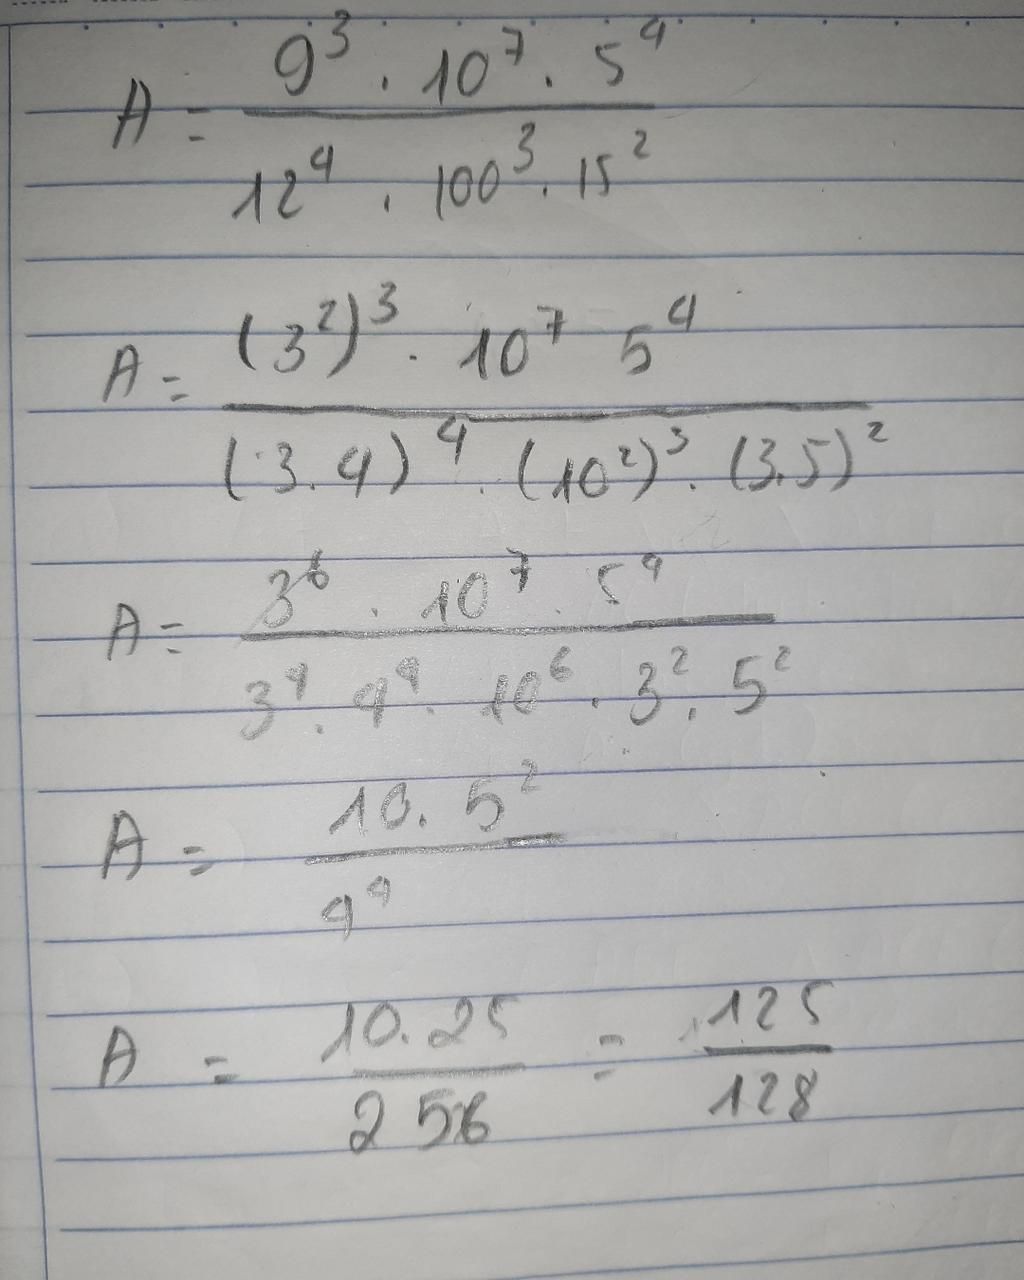 A = 9³ . 10⁷ . 5⁴ / 12⁴ . 100³ . 15²
A = (3²)³ . 10⁷ 5⁴ / (3.4)⁴ . (10²)³ . (3.5)²
A = 3⁶ . 10⁷ . 5⁴ / 3⁴ . 4⁴ . 10⁶ . 3² . 5²
A = 10 . 5² / 4⁴
A = 10.25 / 256 = 125 / 128